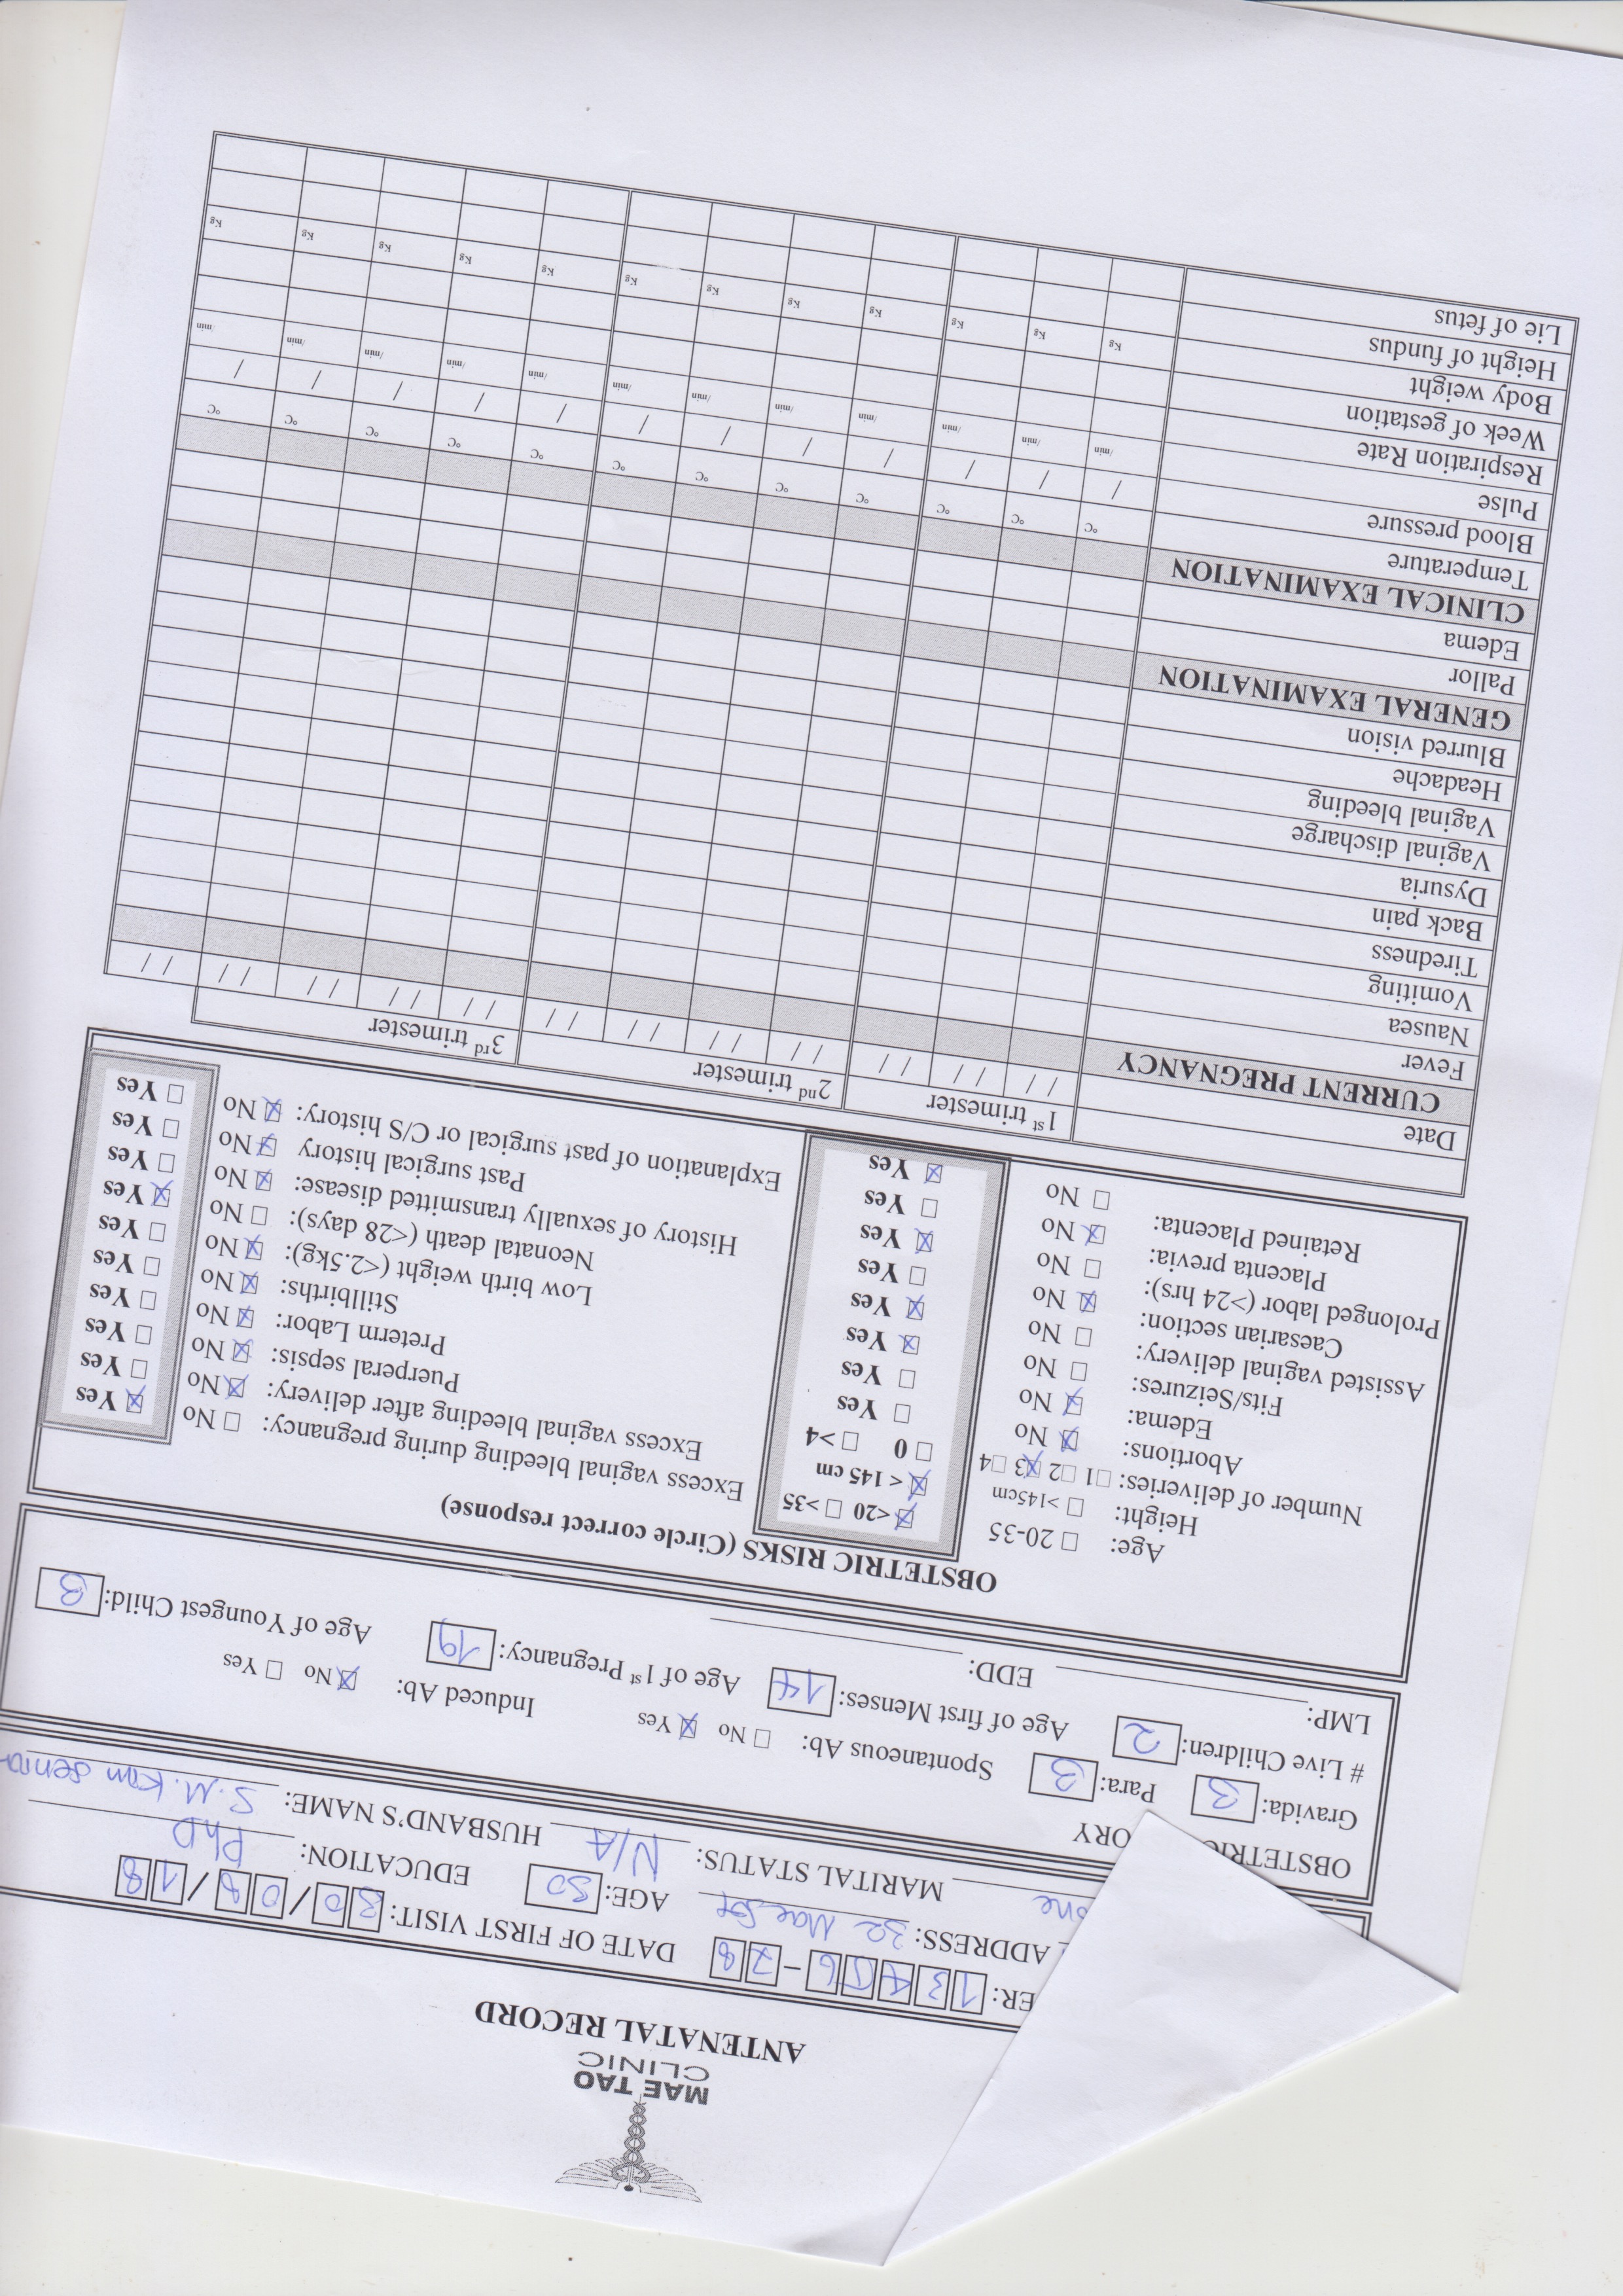 MAE TAO
CLINIC
ANTENATAL RECORD
ER: 13456-78 DATE OF FIRST VISIT: 30/08/18
ADDRESS: 32 Mae Sot AGE: EDUCATION: PhD
MARITAL STATUS: N/A HUSBAND'S NAME: S.M.
ORY
Gravida: 3 Para: 3 Spontaneous Ab: ☐ No ☒ Yes Induced Ab: ☒ No ☐ Yes
# Live Children: 2 Age of first Menses: 14 Age of 1st Pregnancy: 19 Age of Youngest Child: 3
LMP: EDD:
OBSTETRIC RISKS (Circle correct response)
Age: ☐ 20-35 ☒ <20 ☐ >35
Height: ☐ >145cm ☒ < 145 cm
Number of deliveries: ☐1 ☐2 ☒3 ☐4 ☐ 0 ☐ >4
Abortions: ☒ No ☐ Yes
Edema: ☒ No ☐ Yes
Fits/Seizures: ☐ No ☒ Yes
Assisted vaginal delivery: ☐ No ☒ Yes
Caesarian section: ☒ No ☐ Yes
Prolonged labor (>24 hrs): ☐ No ☒ Yes
Placenta previa: ☒ No ☐ Yes
Retained Placenta: ☐ No ☒ Yes
Excess vaginal bleeding during pregnancy: ☐ No ☒ Yes
Excess vaginal bleeding after delivery: ☒ No ☐ Yes
Puerperal sepsis: ☒ No ☐ Yes
Preterm Labor: ☒ No ☐ Yes
Stillbirths: ☒ No ☐ Yes
Low birth weight (<2.5kg): ☒ No ☐ Yes
Neonatal death (<28 days): ☐ No ☒ Yes
History of sexually transmitted disease: ☒ No ☐ Yes
Past surgical history ☒ No ☐ Yes
Explanation of past surgical or C/S history: ☒ No ☐ Yes
1st trimester 2nd trimester 3rd trimester
Date / / / / / / / / / / / / / / / / / / / / / / / /
CURRENT PREGNANCY
Fever
Nausea
Vomiting
Tiredness
Back pain
Dysuria
Vaginal discharge
Vaginal bleeding
Headache
Blurred vision
GENERAL EXAMINATION
Pallor
Edema
CLINICAL EXAMINATION
Temperature °C °C °C °C °C °C °C °C °C °C °C °C
Blood pressure / / / / / / / / / / / /
Pulse /min /min /min /min /min /min /min /min /min /min /min /min
Respiration Rate
Week of gestation
Body weight Kg Kg Kg Kg Kg Kg Kg Kg Kg Kg Kg Kg
Height of fundus
Lie of fetus